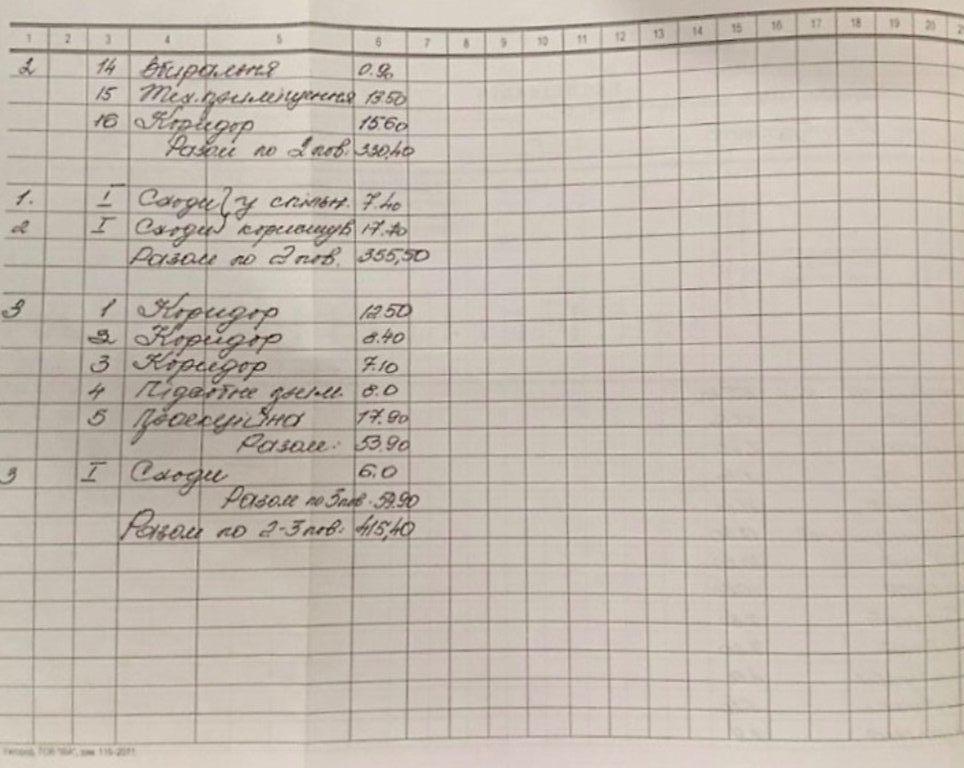 1 2 3 4 5 6 7 8 9 10 11 12 13 14 15 16 17 18 19 20
2 14 Вбиральня 0.90
15 Тех.приміщення 13.50
16 Коридор 15.60
Разом по 2 пов. 330,40
1. I Сходи } у спільн. 7.40
2 I Сходи } користув 17.70
Разом по 2 пов. 355,50
3 1 Коридор 12.50
2 Коридор 8.40
3 Коридор 7.10
4 Підсобне прим. 8.0
5 Проекційна 17.90
Разом: 53.90
3 I Сходи 6.0
Разом по 3 пов. 59.90
Разом по 2-3 пов: 415,40